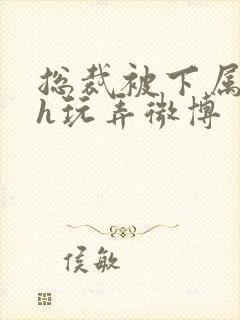 总裁被下属
h玩弄微博
侯敏